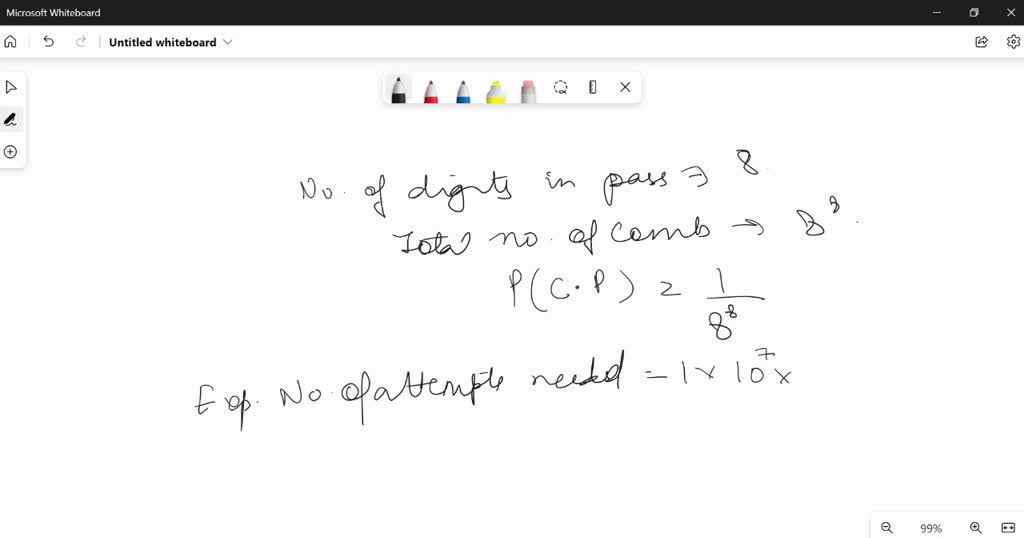 Microsoft Whiteboard
Untitled whiteboard
No. of digits in pass ⇒ 8
Total no. of comb → 8⁸.
P(C.P) = 1/8⁸
Exp. No. of attempts needed = 1 × 10⁷ ×
99%